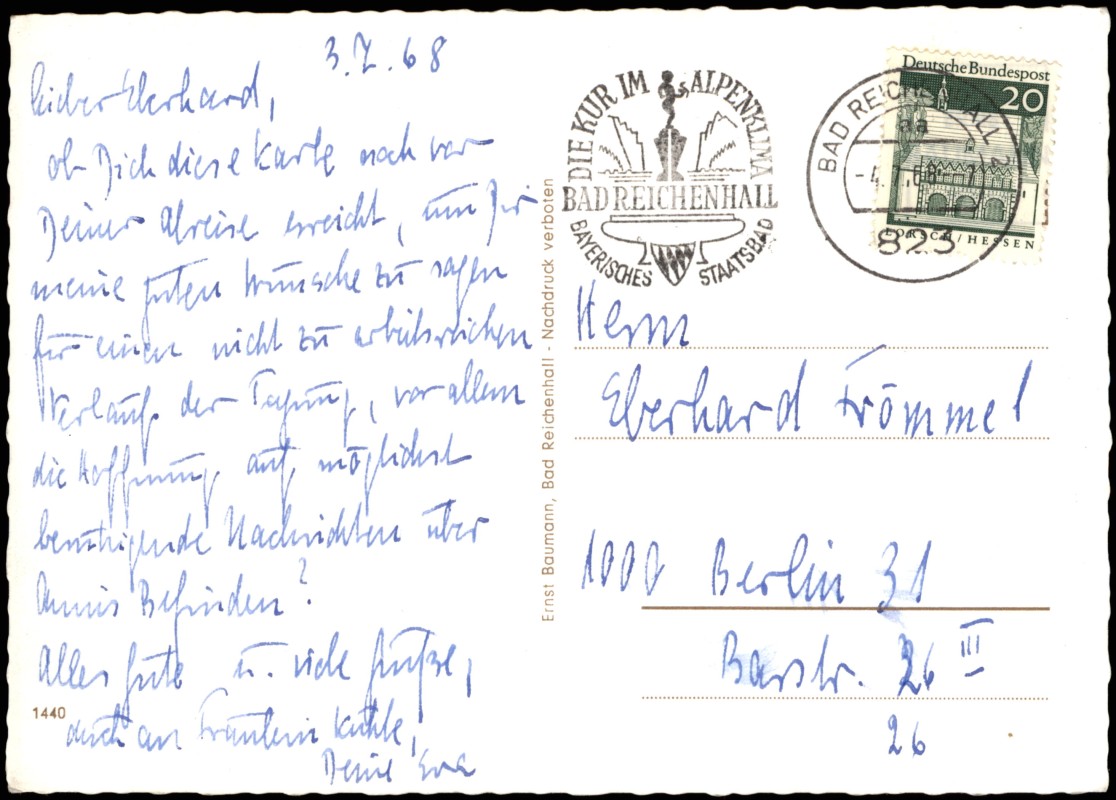 3.7.68
Lieber Eberhard,
ob Dich diese Karte noch vor
Deiner Abreise erreicht, um Dir
meine guten Wünsche zu sagen
für einen nicht zu arbeitsreichen
Verlauf der Tagung, vor allem
die Hoffnung auf möglichst
beruhigende Nachrichten über
Annis Befinden?
Alles Gute u. viele Grüße,
auch an Fräulein Kühle,
Deine Eva
1440
Ernst Baumann, Bad Reichenhall - Nachdruck verboten
DIE KUR IM ALPENKLIMA
BAD REICHENHALL
BAYERISCHES STAATSBAD
BAD REICHENHALL 2
aa
-4.7.68-
823
Deutsche Bundespost
20
LORSCH/HESSEN
Herrn
Eberhard Frömmel
1000 Berlin 31
Barstr. 26 III
26